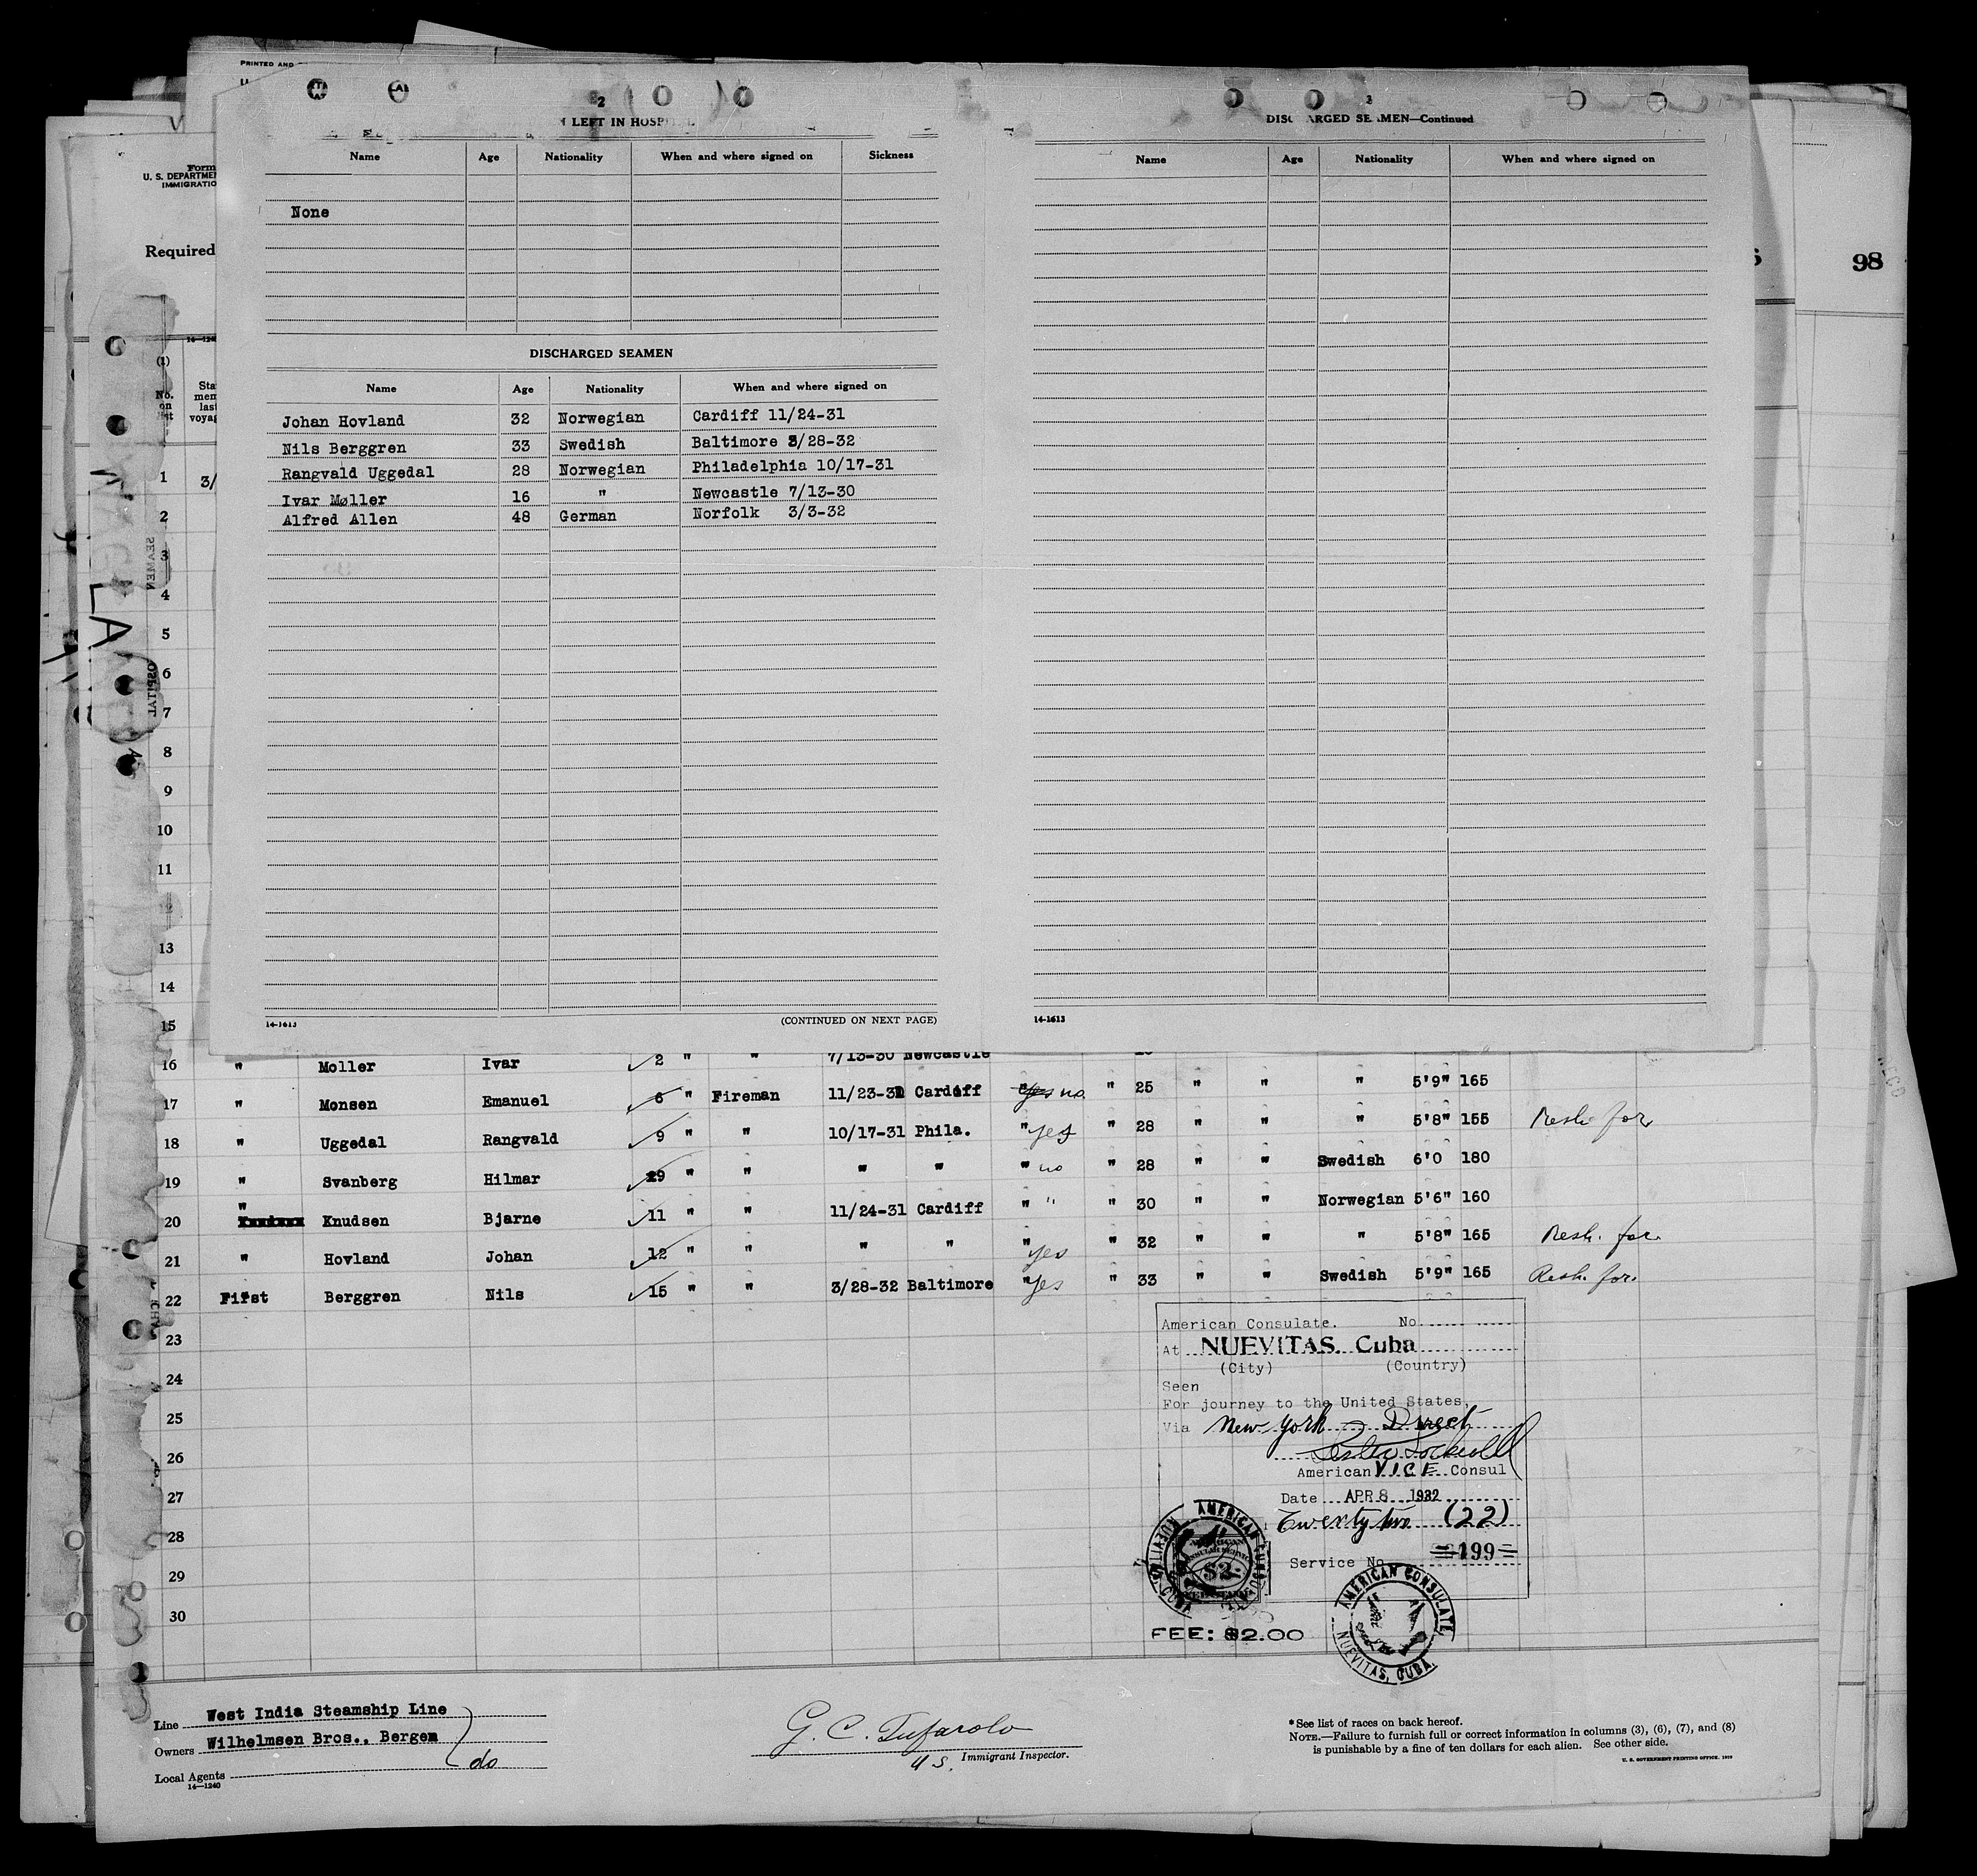 PRINTED AND
2
LEFT IN HOSP
Name Age Nationality When and where signed on Sickness
None
DISCHARGED SEAMEN
Name Age Nationality When and where signed on
Johan Hovland 32 Norwegian Cardiff 11/24-31
Nils Berggren 33 Swedish Baltimore 3/28-32
Rangvald Uggedal 28 Norwegian Philadelphia 10/17-31
Ivar Møller 16 " Newcastle 7/13-30
Alfred Allen 48 German Norfolk 3/3-32
14-1613 (CONTINUED ON NEXT PAGE)
3
DISCHARGED SEAMEN—Continued
Name Age Nationality When and where signed on
14-1613
98
Form
U. S. DEPARTME
IMMIGRATIO
Required
14-124
(1)
No. on list
Sta
men
last
voyag
1 3/
2
3
4
5
6
7
8
9
10
11
12
13
14
15
16 " Moller Ivar 2 " " 7/13-30 Newcastle
17 " Monsen Emanuel 6 " Fireman 11/23-31 Cardiff " yes no " 25 " " " 5'9" 165
18 " Uggedal Rangvald 9 " " 10/17-31 Phila. " yes " 28 " " " 5'8" 155 Resh. for
19 " Svanberg Hilmar 29 " " " " " no " 28 " " Swedish 6'0 180
20 " Knudsen Bjarne 11 " " 11/24-31 Cardiff " " " 30 " " Norwegian 5'6" 160
21 " Hovland Johan 12 " " " " " yes " 32 " " " 5'8" 165 Resh. for.
22 First Berggren Nils 15 " " 3/28-32 Baltimore " yes " 33 " " Swedish 5'9" 165 Resh. for.
23
24
25
26
27
28
29
30
American Consulate. No
At NUEVITAS, Cuba
(City) (Country)
Seen
For journey to the United States,
Via New York Direct
American VICE Consul
Date APR 8 1932
Twenty two (22)
Service No. =199=
AMERICAN CONSULATE
NUEVITAS, CUBA
$2
FEE: $2.00
AMERICAN CONSULATE
NUEVITAS, CUBA.
Line West India Steamship Line
Owners Wilhelmsen Bros., Bergen
Local Agents do
14—1240
G. C. Tufarolo
U S. Immigrant Inspector.
*See list of races on back hereof.
NOTE.—Failure to furnish full or correct information in columns (3), (6), (7), and (8)
is punishable by a fine of ten dollars for each alien. See other side.
U. S. GOVERNMENT PRINTING OFFICE